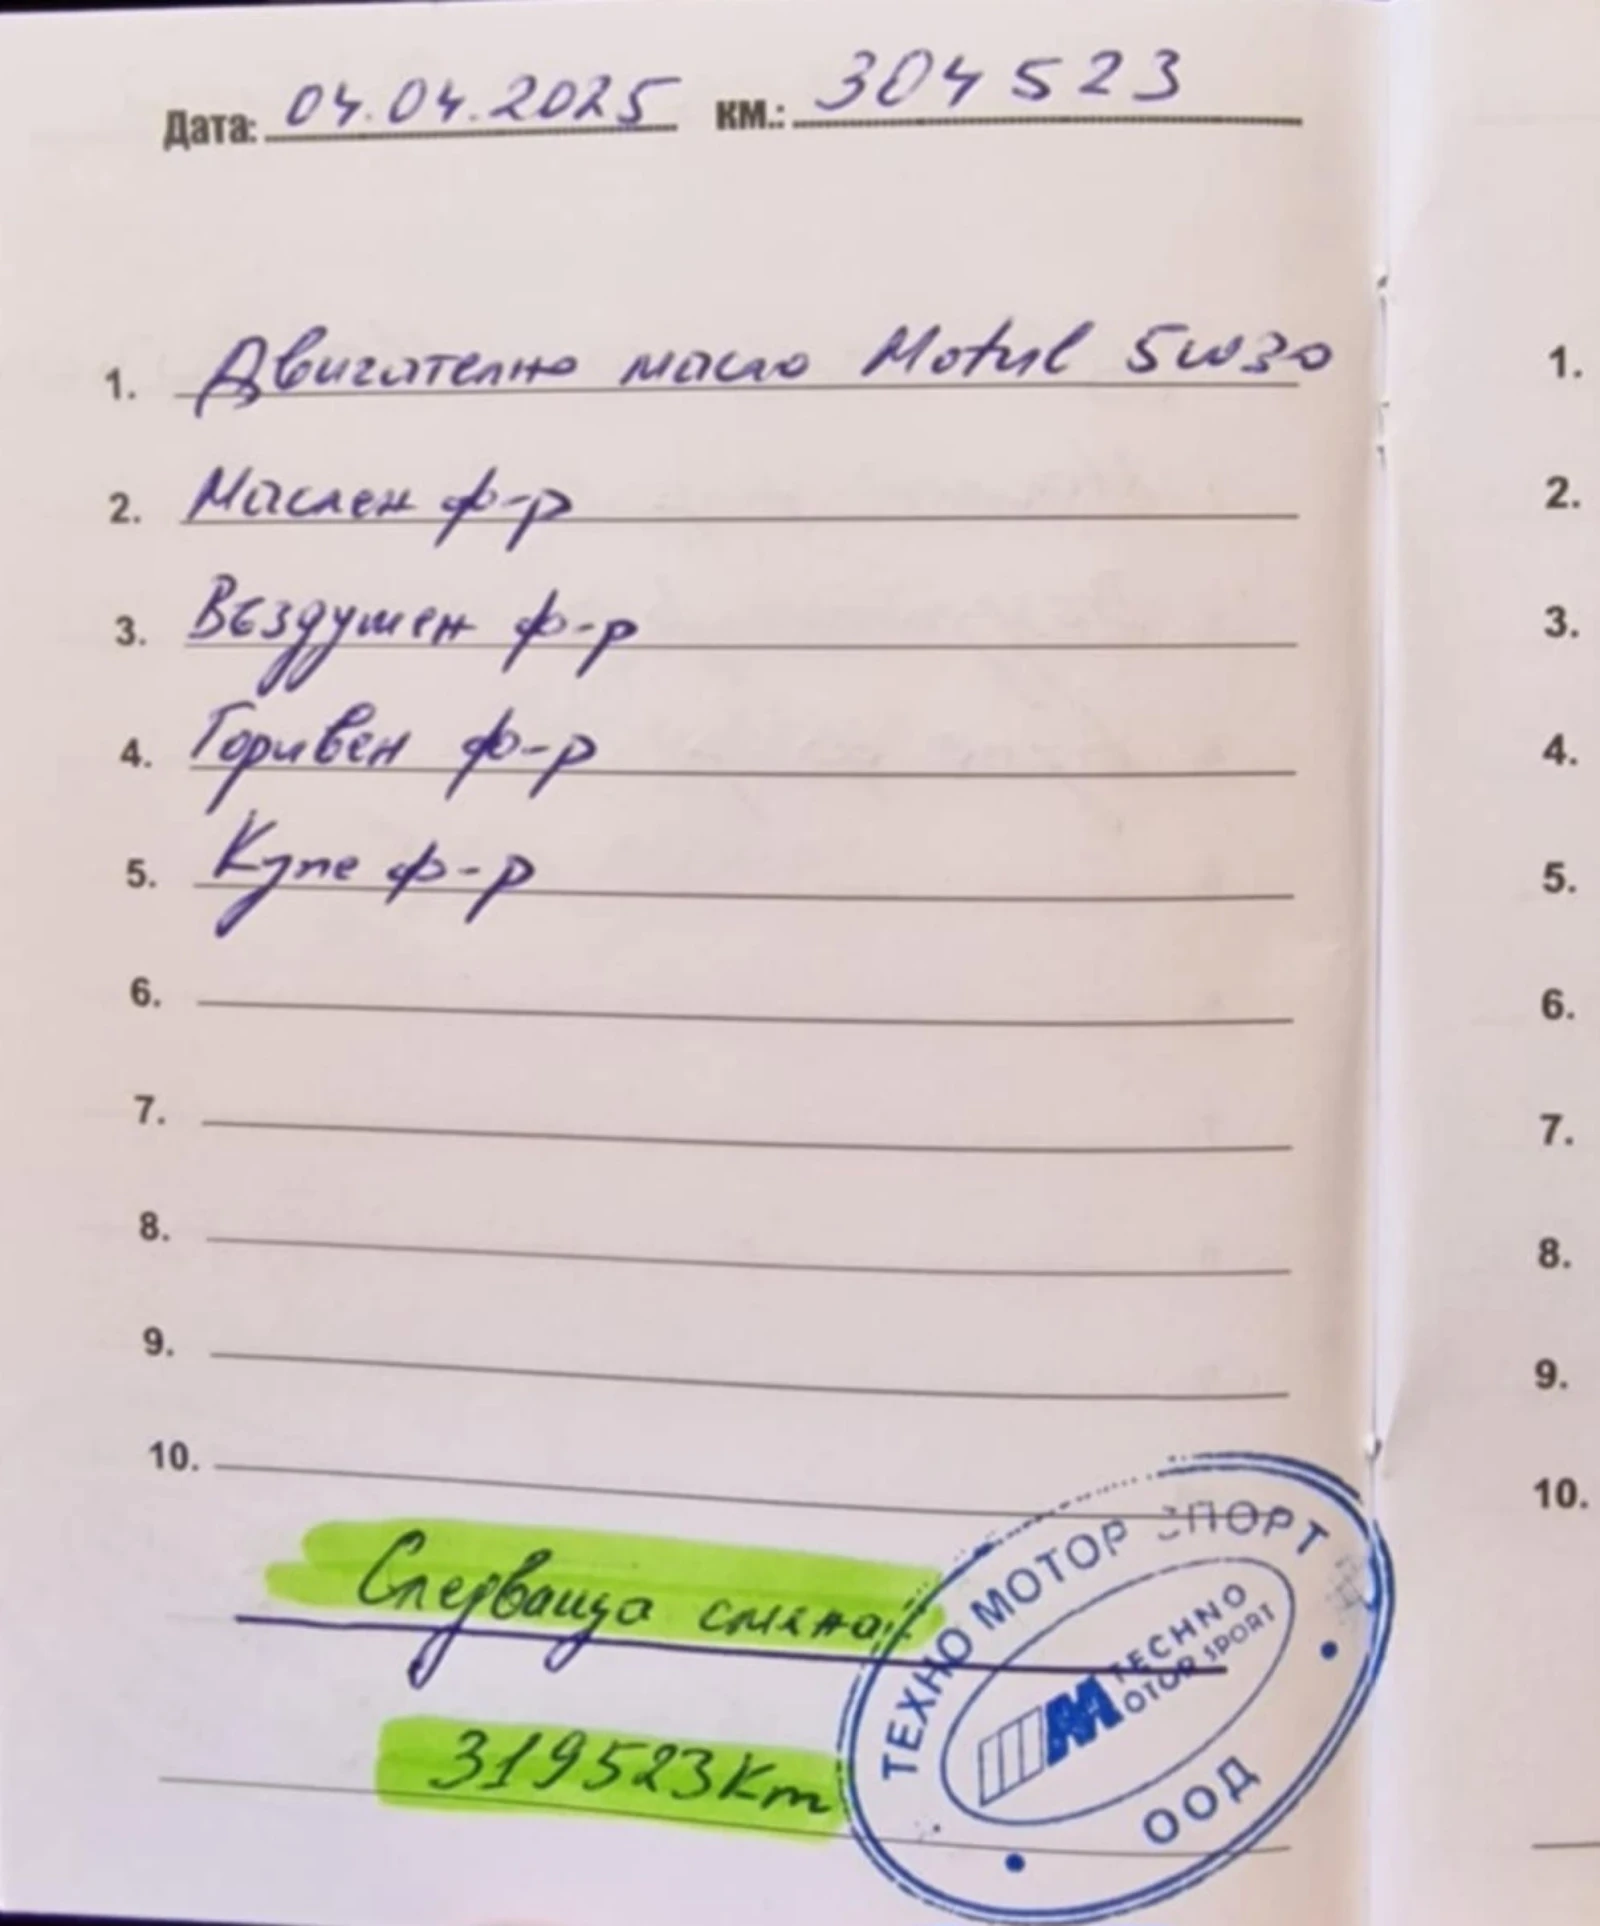 Дата: 04.04.2025 км.: 304523
1. Двигателно масло Motul 5w30
2. Маслен ф-р
3. Въздушен ф-р
4. Горивен ф-р
5. Купе ф-р
6.
7.
8.
9.
10.
Следваща смяна:
319523Km
ТЕХНО МОТОР СПОРТ
TECHNO
MOTOR SPORT
ООД
1.
2.
3.
4.
5.
6.
7.
8.
9.
10.